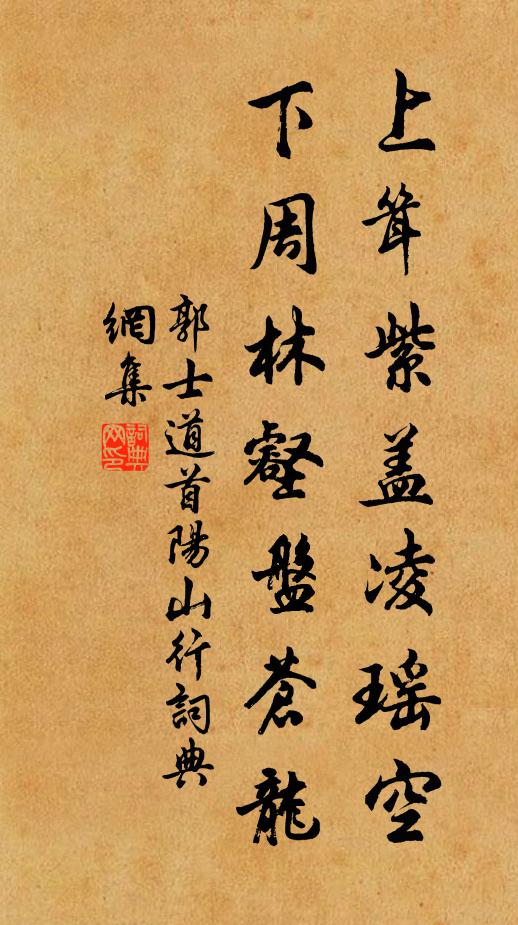 上耸紫盖凌瑶空
下周林壑盤蒼龍
郭士道首陽山行詞典
網集
詞典网印